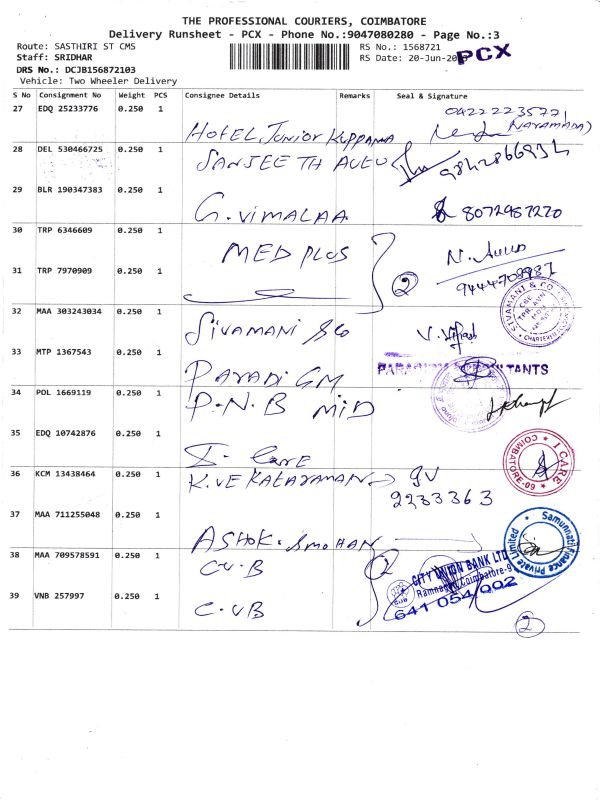 THE PROFESSIONAL COURIERS, COIMBATORE
Delivery Runsheet - PCX - Phone No.:9047080280 - Page No.:3
Route: SASTHIRI ST CMS
Staff: SRIDHAR
DRS No.: DCJB156872103
Vehicle: Two Wheeler Delivery
RS No.: 1568721
RS Date: 20-Jun-20
PCX
S No Consignment No Weight PCS Consignee Details Remarks Seal & Signature
27 EDQ 25233776 0.250 1 HOTEL Junior Kuppanna 0422223577
28 DEL 530466725 0.250 1 SANJEETH
29 BLR 190347383 0.250 1 G. VIMALAA 8072987270
30 TRP 6346609 0.250 1 MED PLUS
31 TRP 7970909 0.250 1 2
32 MAA 303243034 0.250 1 SIVAMANI &Co
SIVAMANI & CO
33 MTP 1367543 0.250 1
34 POL 1669119 0.250 1 P.N.B MID
35 EDQ 10742876 0.250 1 I. Care
I CARE
COIMBATORE-09
36 KCM 13438464 0.250 1 2233363
37 MAA 711255048 0.250 1 ASHOK. SMOHAN
Samunnati Finance Private Limited
38 MAA 709578591 0.250 1 C.U.B 2
CITY UNION BANK LTD
Ramnagar, Coimbatore-9
641 054/002
39 VNB 257997 0.250 1 C.UB
2